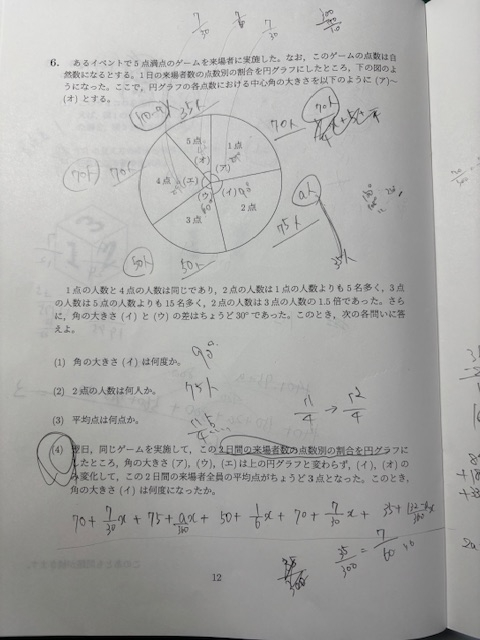 7/30
7/30
300
6. あるイベントで5点満点のゲームを来場者に実施した。なお,このゲームの点数は自
然数になるとする。1日の来場者数の点数別の割合を円グラフにしたところ,下の図のよ
うになった。ここで,円グラフの各点数における中心角の大きさを以下のように (ア)~
(オ) とする。
35人
70人
70人
5点
1点
(オ)
(ア)
70人
70人
4点
(エ)
(イ)90°
(ウ)
60°
2点
3点
a人
75人
50人
50人
35人
1点の人数と4点の人数は同じであり,2点の人数は1点の人数よりも5名多く,3点
の人数は5点の人数よりも15名多く,2点の人数は3点の1.5倍であった。さら
に,角の大きさ (イ) と (ウ) の差はちょうど30°であった。このとき,次の各問いに答
えよ。
(1) 角の大きさ (イ) は何度か。
90°
(2) 2点の人数は何人か。
75人
(3) 平均点は何点か。
11/4 → 12/4
(4) 翌日,同じゲームを実施して,この2日間の来場者数の点数別の割合を円グラフに
したところ,角の大きさ (ア),(ウ),(エ) は上の円グラフと変わらず,(イ),(オ) の
み変化して,この2日間の来場者全員の平均点がちょうど3点となった。このとき,
角の大きさ (イ) は何度になったか。
70+7/30x+75+a/360x+50+1/6x+70+7/30x+35+
35/300=7/60
12